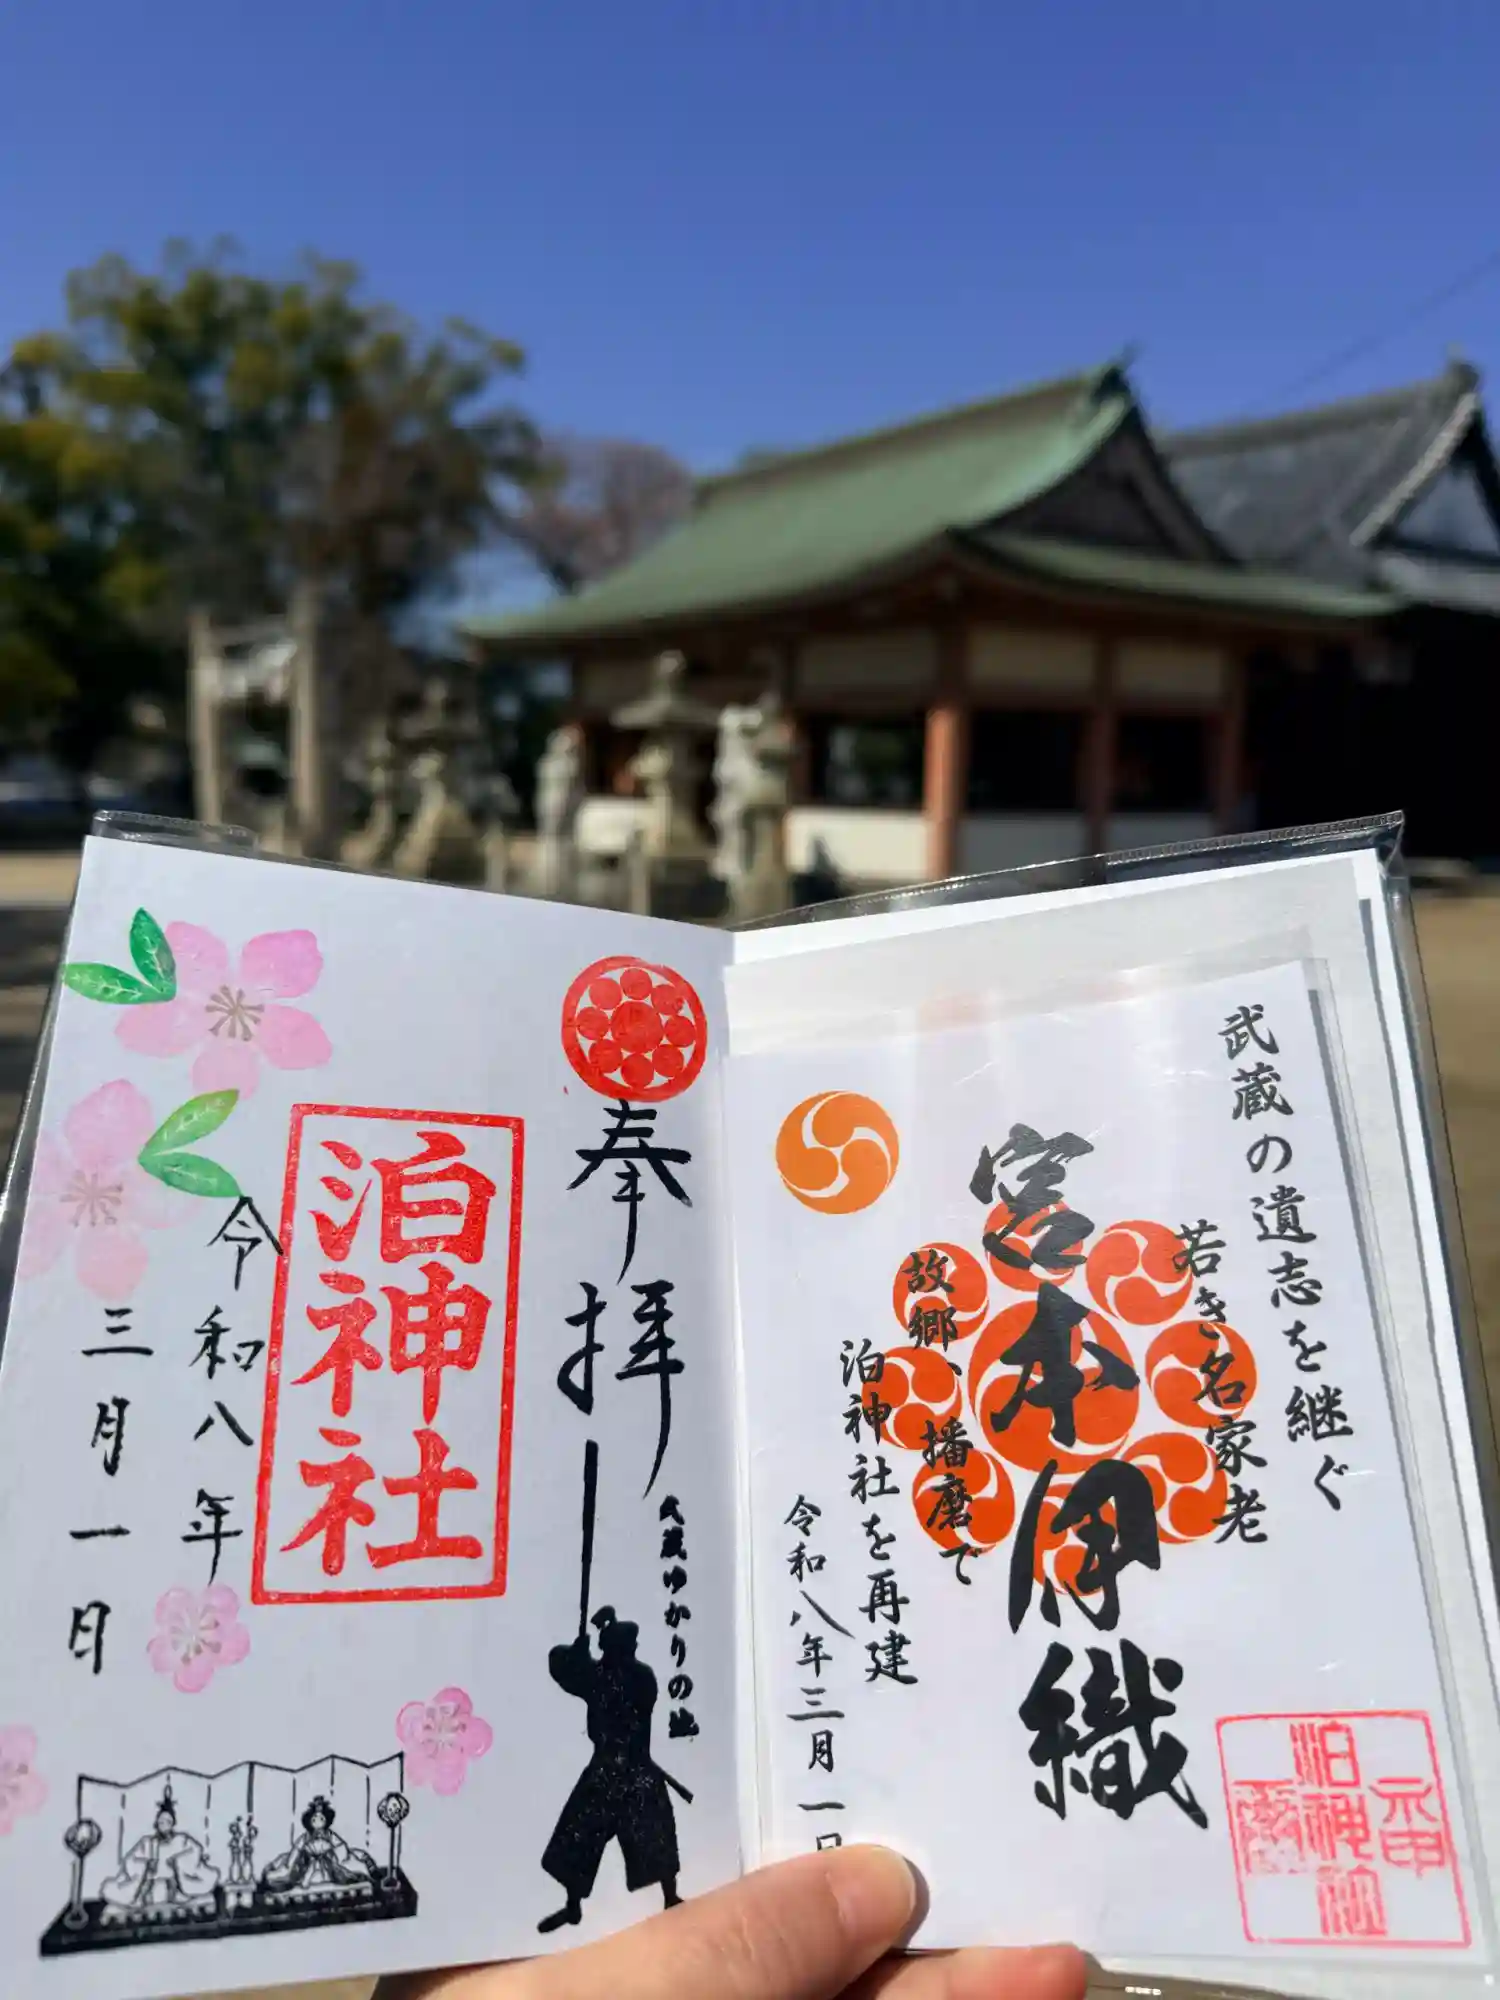 武蔵の遺志を継ぐ
若き名家老
宮本伊織
故郷、播磨で
泊神社を再建
令和八年三月一日
泊神社
奉拝
武蔵ゆかりの地
泊神社
令和八年
三月一日